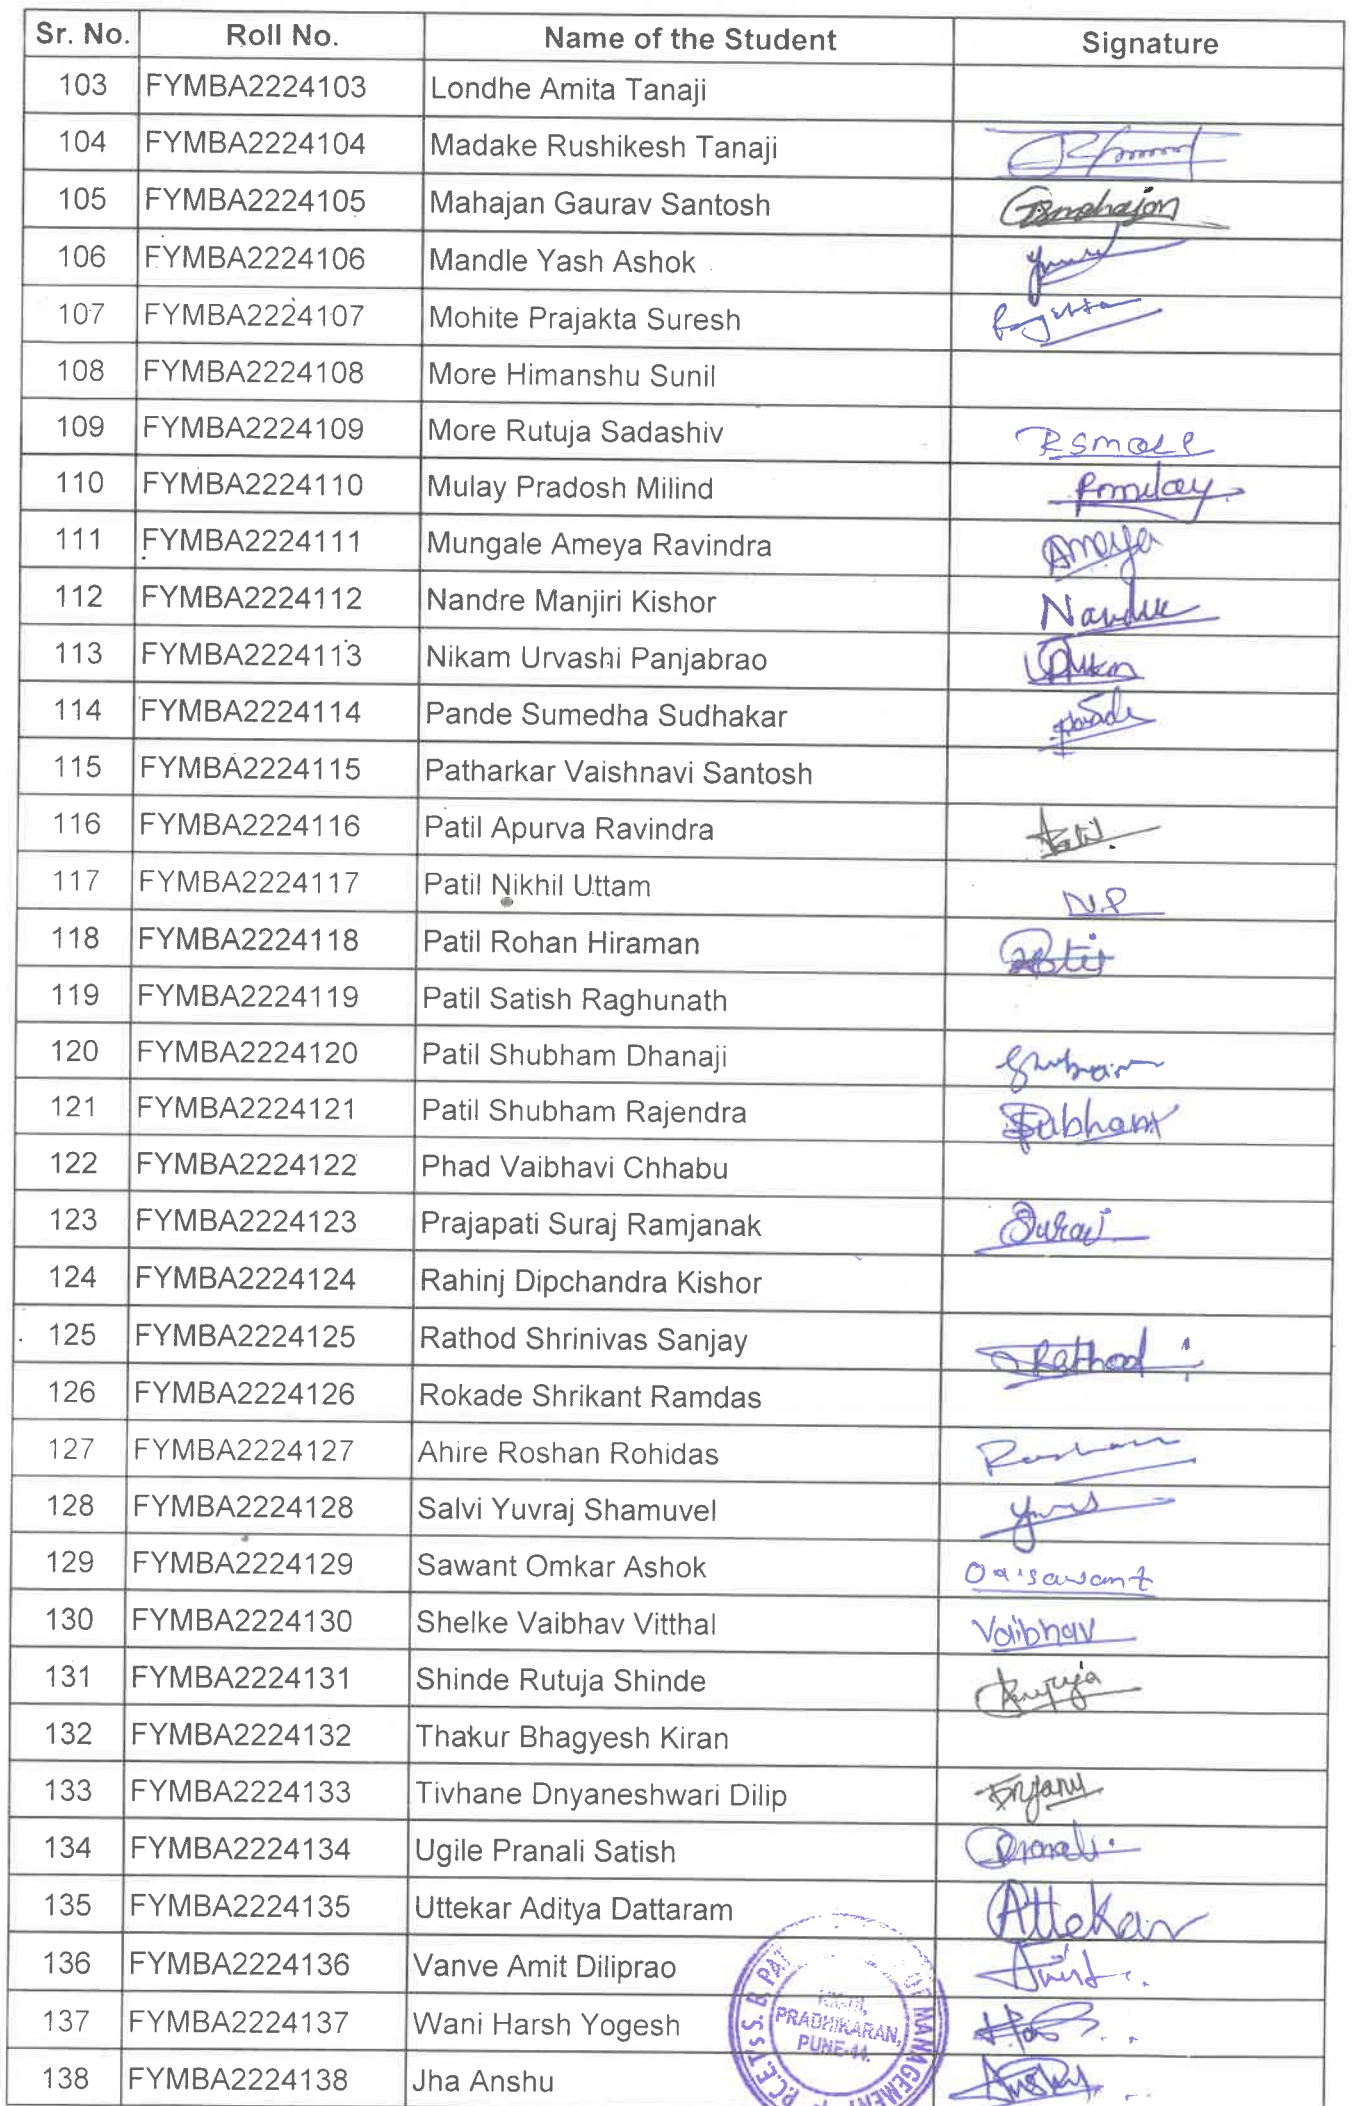 Sr. No. Roll No. Name of the Student Signature
103 FYMBA2224103 Londhe Amita Tanaji
104 FYMBA2224104 Madake Rushikesh Tanaji
105 FYMBA2224105 Mahajan Gaurav Santosh Gsmahajan
106 FYMBA2224106 Mandle Yash Ashok
107 FYMBA2224107 Mohite Prajakta Suresh
108 FYMBA2224108 More Himanshu Sunil
109 FYMBA2224109 More Rutuja Sadashiv RSmore
110 FYMBA2224110 Mulay Pradosh Milind Pmulay
111 FYMBA2224111 Mungale Ameya Ravindra Ameya
112 FYMBA2224112 Nandre Manjiri Kishor Nandre
113 FYMBA2224113 Nikam Urvashi Panjabrao
114 FYMBA2224114 Pande Sumedha Sudhakar
115 FYMBA2224115 Patharkar Vaishnavi Santosh
116 FYMBA2224116 Patil Apurva Ravindra
117 FYMBA2224117 Patil Nikhil Uttam N.P
118 FYMBA2224118 Patil Rohan Hiraman
119 FYMBA2224119 Patil Satish Raghunath
120 FYMBA2224120 Patil Shubham Dhanaji
121 FYMBA2224121 Patil Shubham Rajendra
122 FYMBA2224122 Phad Vaibhavi Chhabu
123 FYMBA2224123 Prajapati Suraj Ramjanak Suraj
124 FYMBA2224124 Rahinj Dipchandra Kishor
125 FYMBA2224125 Rathod Shrinivas Sanjay Rathod
126 FYMBA2224126 Rokade Shrikant Ramdas
127 FYMBA2224127 Ahire Roshan Rohidas Roshan
128 FYMBA2224128 Salvi Yuvraj Shamuvel
129 FYMBA2224129 Sawant Omkar Ashok
130 FYMBA2224130 Shelke Vaibhav Vitthal Vaibhav
131 FYMBA2224131 Shinde Rutuja Shinde
132 FYMBA2224132 Thakur Bhagyesh Kiran
133 FYMBA2224133 Tivhane Dnyaneshwari Dilip
134 FYMBA2224134 Ugile Pranali Satish Pranali
135 FYMBA2224135 Uttekar Aditya Dattaram Attekar
136 FYMBA2224136 Vanve Amit Diliprao
137 FYMBA2224137 Wani Harsh Yogesh
138 FYMBA2224138 Jha Anshu
P.C.E.T's S. B. PAT OF MANAGEMENT
PRADHIKARAN,
PUNE-44.